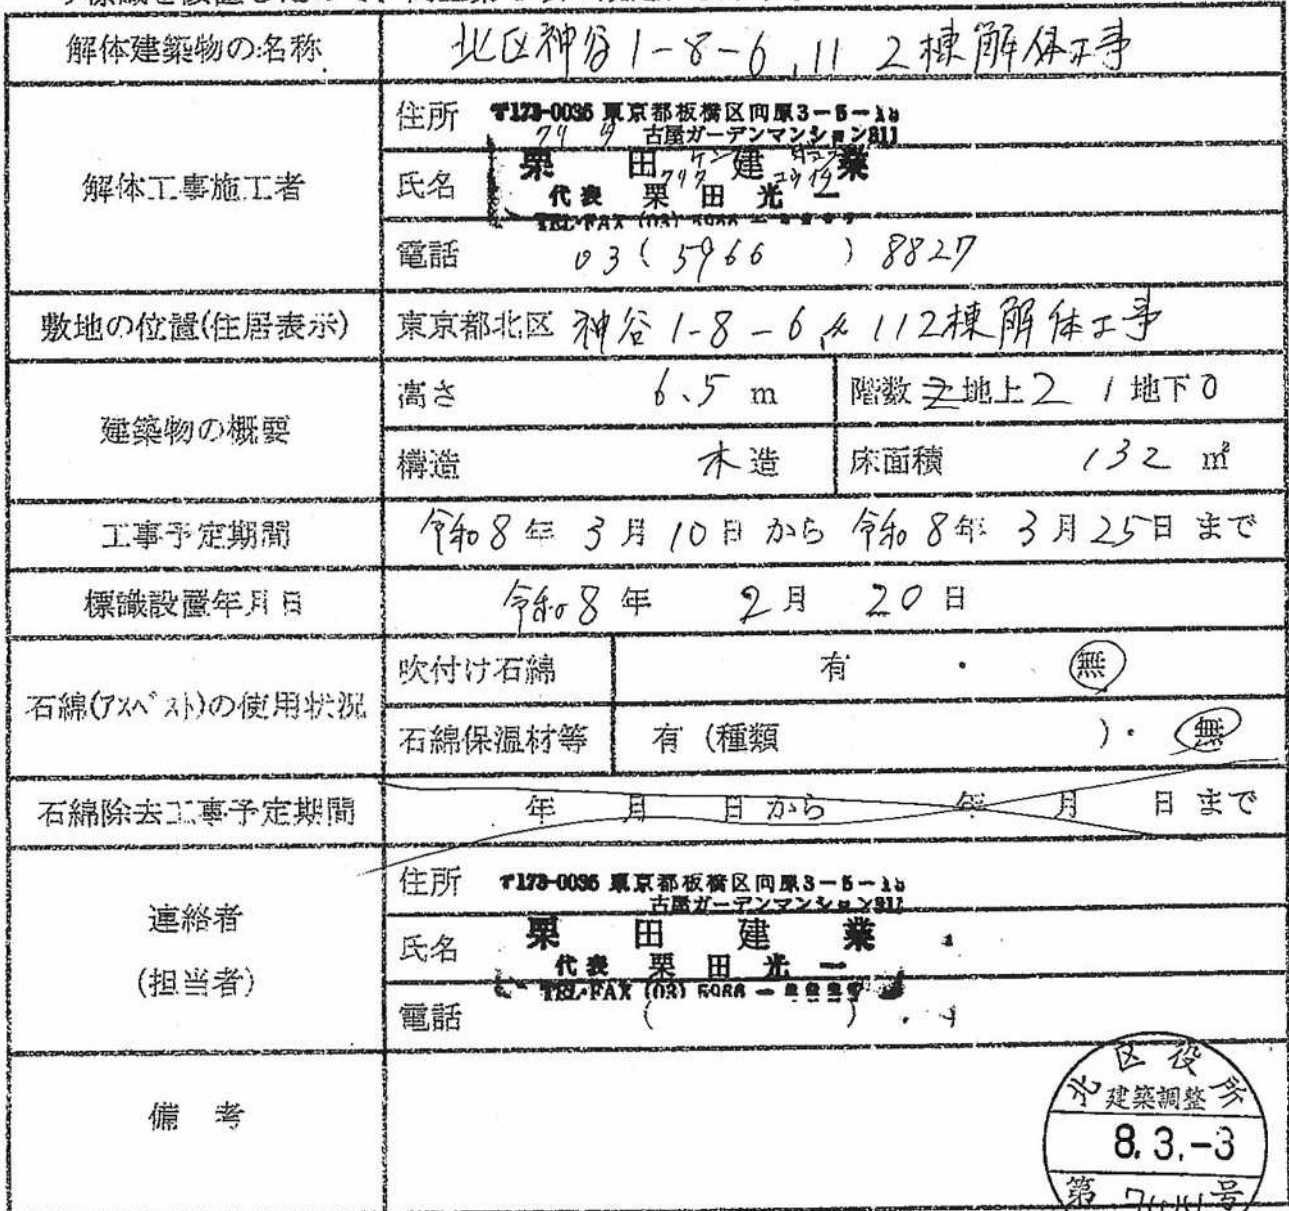 標識を設置したので、
解体建築物の名称 北区神谷1-8-6,11 2棟解体工事
解体工事施工者
住所 〒173-0036 東京都板橋区向原3-5-1
古屋ガーデンマンション311
クリタ ケン
氏名 栗田建業
代表 栗田光一
TEL・FAX (03) 5966 -
電話 03(5966)8827
敷地の位置(住居表示) 東京都北区 神谷1-8-6 112棟解体工事
建築物の概要
高さ 6.5 m 階数 地上2 1 地下0
構造 木造 床面積 132 ㎡
工事予定期間 令和8年 3月10日から 令和8年 3月25日まで
標識設置年月日 令和8年 2月 20日
石綿(アスベスト)の使用状況
吹付け石綿 有 ・ 無
石綿保温材等 有(種類 )・ 無
石綿除去工事予定期間 年 月 日から 年 月 日まで
連絡者
(担当者)
住所 〒173-0036 東京都板橋区向原3-5-1
古屋ガーデンマンション311
氏名 栗田建業
代表 栗田光一
TEL・FAX (03) 5966 -
電話 ( )
備考
北区役所
建築調整
8.3.-3
第 号